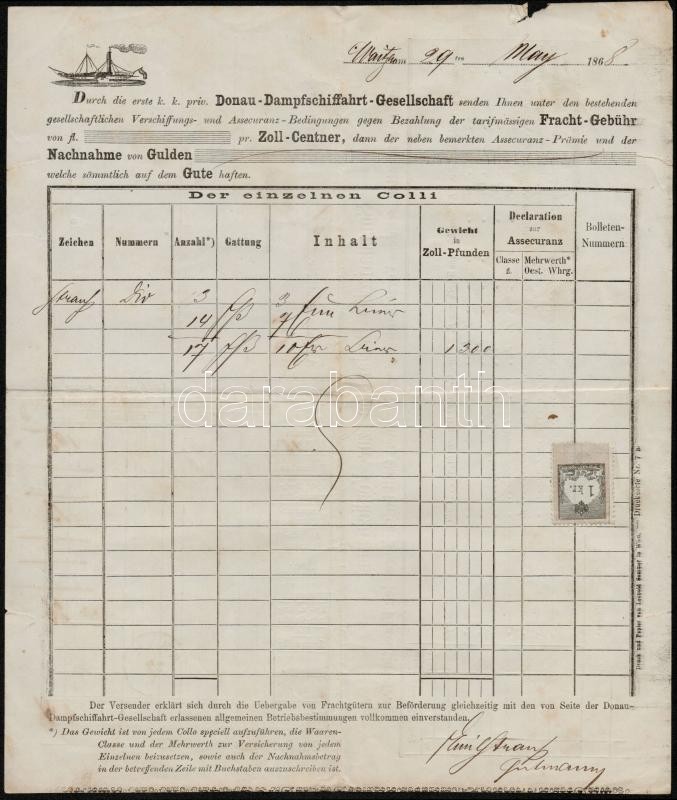 Waitzen am 29 ten May 1868
Durch die erste k. k. priv. Donau-Dampfschiffahrt-Gesellschaft senden Ihnen unter den bestehenden
gesellschaftlichen Verschiffungs- und Assecuranz-Bedingungen gegen Bezahlung der tarifmässigen Fracht-Gebühr
von fl. pr. Zoll-Centner, dann der neben bemerkten Assecuranz-Prämie und der
Nachnahme von Gulden
welche sämmtlich auf dem Gute haften.
Der einzelnen Colli
Zeichen Nummern Anzahl*) Gattung Inhalt Gewicht in Zoll-Pfunden Declaration zur Assecuranz Bolleten-Nummern
Classe f. Mehrwerth* Oest. Whrg.
Div 3 3
14 7
17 10 1300
darabanth
1 kr.
Druck und Papier von Leopold Sommer in Wien. — Drucksorte Nr. 7 b.
Der Versender erklärt sich durch die Uebergabe von Frachtgütern zur Beförderung gleichzeitig mit den von Seite der Donau-
Dampfschiffahrt-Gesellschaft erlassenen allgemeinen Betriebsbestimmungen vollkommen einverstanden.
*) Das Gewicht ist von jedem Collo speciell aufzuführen, die Waaren-
Classe und der Mehrwerth zur Versicherung von jedem
Einzelnen beizusetzen, sowie auch der Nachnahmsbetrag
in der betreffenden Zeile mit Buchstaben auszuschreiben ist.